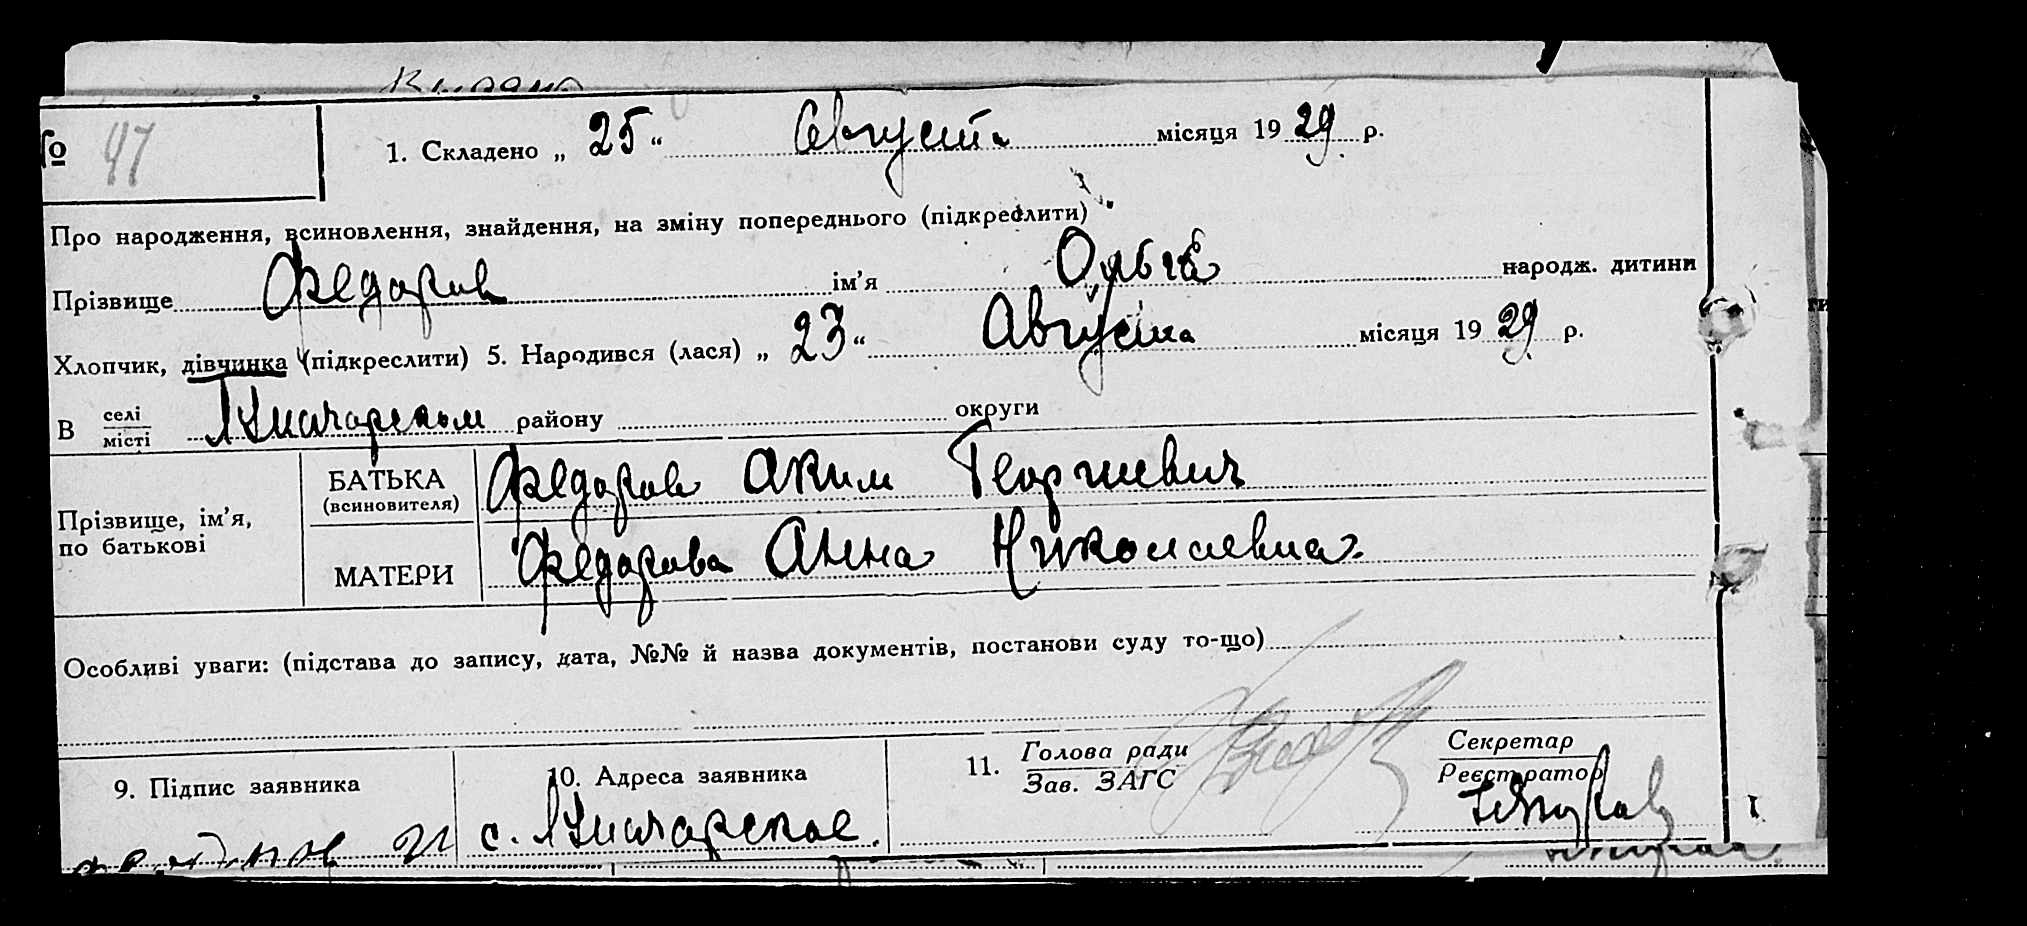 Выдано
№ 47
1. Складено „ 25 “ Август. місяця 1929 р.
Про народження, всиновлення, знайдення, на зміну попереднього (підкреслити)
Прізвище Федоров ім’я Ольга народж. дитини
Хлопчик, дівчинка (підкреслити) 5. Народився (лася) „ 23 “ Августа місяця 1929 р.
В селі місті Луначарском району округи
Прізвище, ім’я, по батькові
БАТЬКА (всиновителя) Федоров Аким Георгиевич
МАТЕРИ Федорова Анна Николаевна
Особливі уваги: (підстава до запису, дата, №№ й назва документів, постанови суду то-що)
9. Підпис заявника
10. Адреса заявника
с. Луначарское.
11. Голова ради Зав. ЗАГС
Секретар Реєстратор